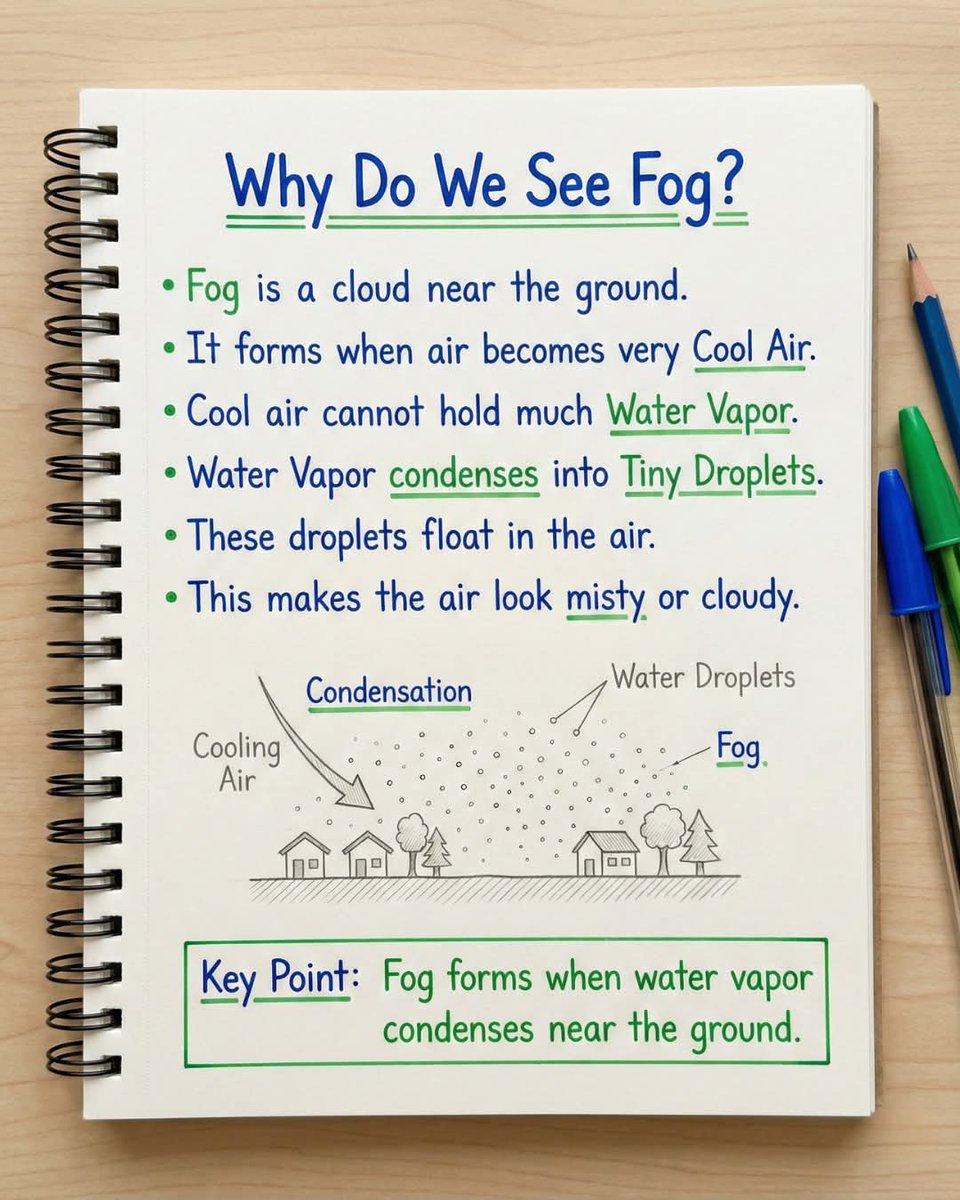 Why Do We See Fog?
• Fog is a cloud near the ground.
• It forms when air becomes very Cool Air.
• Cool air cannot hold much Water Vapor.
• Water Vapor condenses into Tiny Droplets.
• These droplets float in the air.
• This makes the air look misty or cloudy.
Condensation
Water Droplets
Cooling
Air
Fog.
Key Point: Fog forms when water vapor
condenses near the ground.